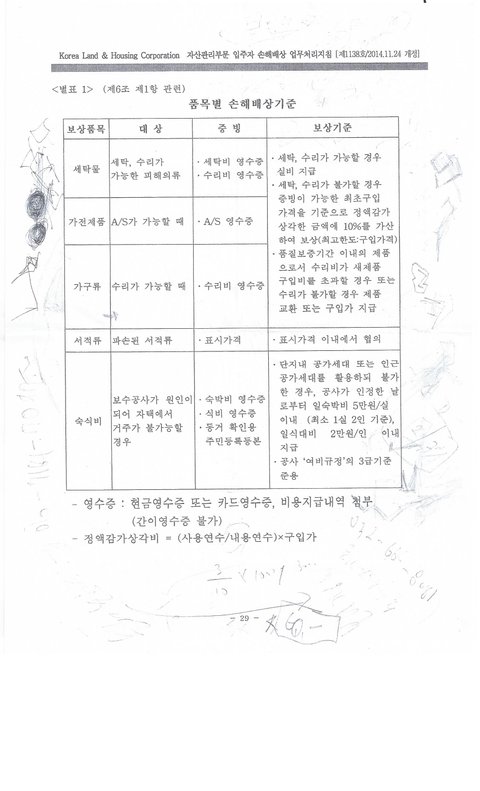 Korea Land & Housing Corporation 자산관리부문 입주자 손해배상 업무처리지침 [제1138호/2014.11.24 개정]
<별표 1> (제6조 제1항 관련)
품목별 손해배상기준
보상품목 대 상 증 빙 보상기준
세탁물
세탁, 수리가
가능한 피해의류
· 세탁비 영수증
· 수리비 영수증
가전제품 A/S가 가능할 때 · A/S 영수증
가구류 수리가 가능할 때 · 수리비 영수증
· 세탁, 수리가 가능할 경우
실비 지급
· 세탁, 수리가 불가할 경우
증빙이 가능한 최초구입
가격을 기준으로 정액감가
상각한 금액에 10%를 가산
하여 보상(최고한도:구입가격)
· 품질보증기간 이내의 제품
으로서 수리비가 새제품
구입비를 초과할 경우 또는
수리가 불가할 경우 제품
교환 또는 구입가 지급
서적류 파손된 서적류 · 표시가격 · 표시가격 이내에서 협의
숙식비
보수공사가 원인이
되어 자택에서
거주가 불가능할
경우
· 숙박비 영수증
· 식비 영수증
· 동거 확인용
주민등록등본
· 단지내 공가세대 또는 인근
공가세대를 활용하되 불가
한 경우, 공사가 인정한 날
로부터 일숙박비 5만원/실
이내 (최소 1실 2인 기준),
일식대비 2만원/인 이내
지급
· 공사 '여비규정'의 3급기준
준용
- 영수증 : 현금영수증 또는 카드영수증, 비용지급내역 첨부
(간이영수증 불가)
- 정액감가상각비 = (사용연수/내용연수)×구입가
- 29 -